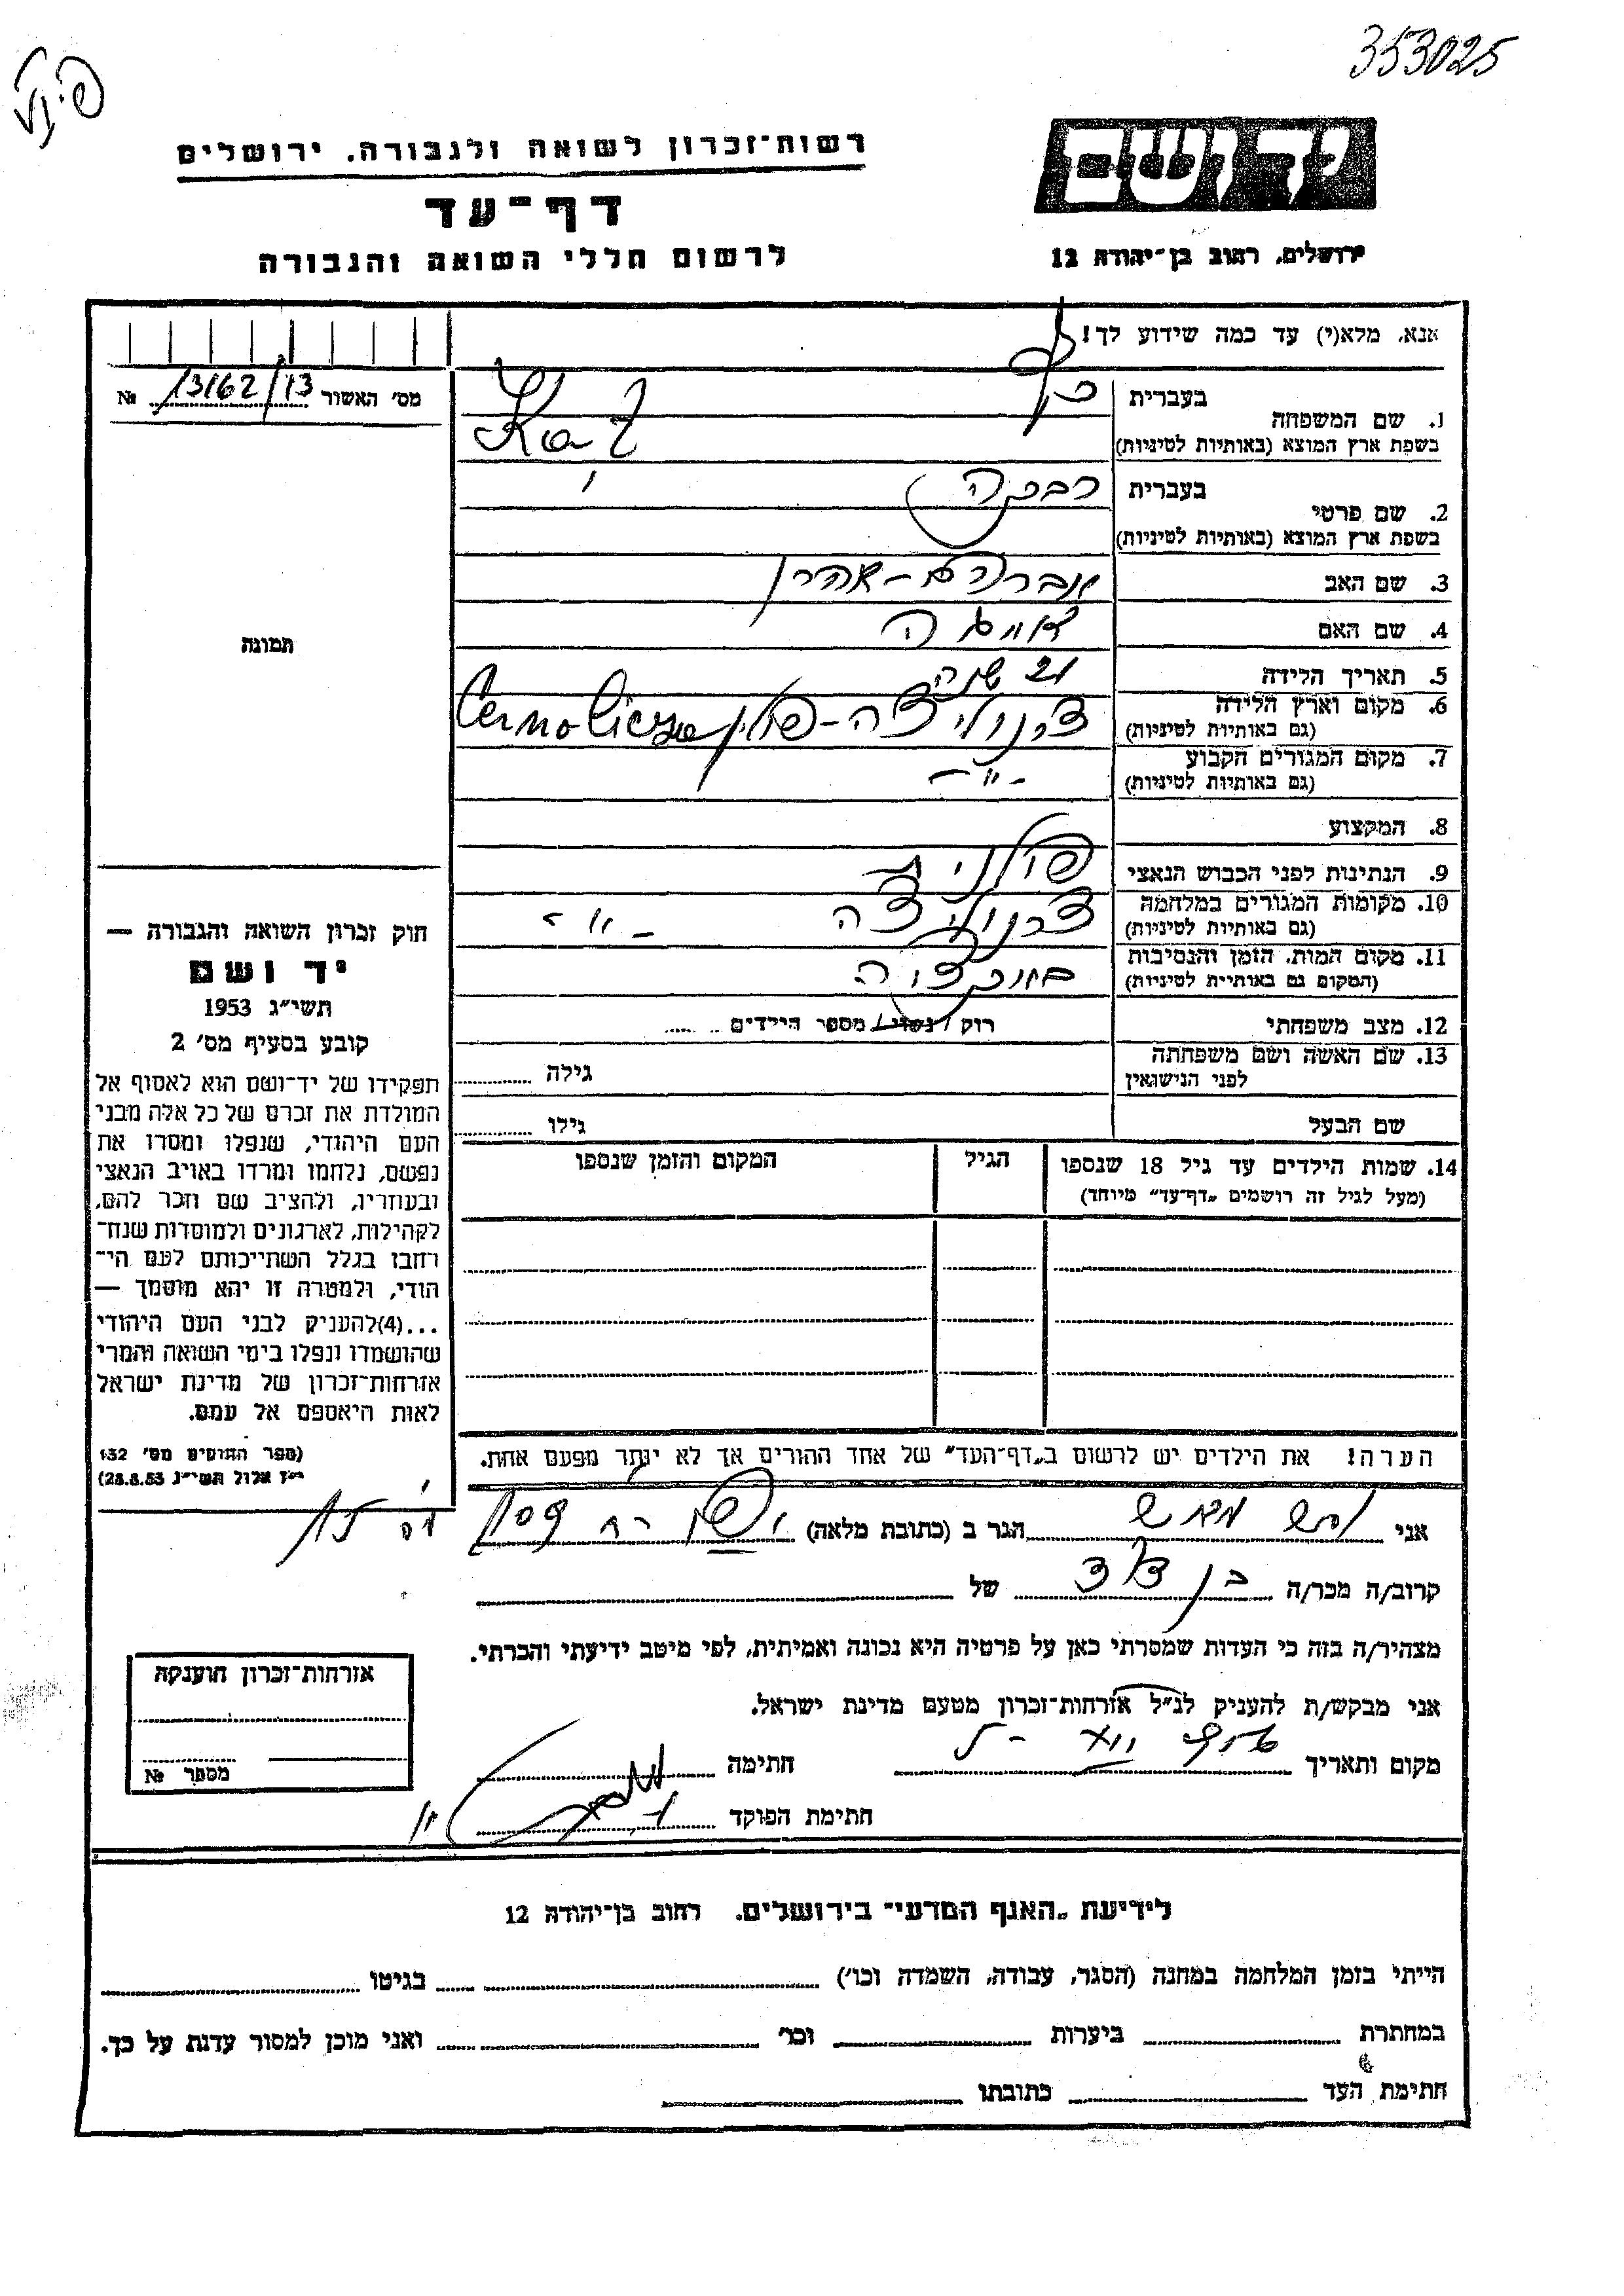 353025
רשות־זכרון לשואה ולגבורה, ירושלים
דף־עד
לרשום חללי השואה והגבורה
יד ושם
ירושלים, רחוב בן־יהודה 12
אנא, מלא(י) עד כמה שידוע לך!
מס׳ האשור 13162/13 №
1. שם המשפחה
בעברית כץ
בשפת ארץ המוצא (באותיות לטיניות) Kaz
2. שם פרטי
בעברית רבקה
בשפת ארץ המוצא (באותיות לטיניות)
3. שם האב אברהם-אהרן
4. שם האם
5. תאריך הלידה 21 שנה
6. מקום וארץ הלידה
(גם באותיות לטיניות)
7. מקום המגורים הקבוע
(גם באותיות לטיניות) -״-
8. המקצוע
9. הנתינות לפני הכבוש הנאצי פולנית
10. מקומות המגורים במלחמה -״-
(גם באותיות לטיניות)
11. מקום המות, הזמן והנסיבות
(המקום גם באותיית לטיניות)
12. מצב משפחתי רוק / נשוי / מספר הילדים
13. שם האשה ושם משפחתה
לפני הנישואין
גילה
שם הבעל גילו
14. שמות הילדים עד גיל 18 שנספו הגיל המקום והזמן שנספו
(מעל לגיל זה רושמים „דף־עד״ מיוחד)
הערה! את הילדים יש לרשום ב„דף־העד״ של אחד ההורים אך לא יותר מפעם אחת.
תמונה
חוק זכרון השואה והגבורה —
יד ושם
תשי״ג 1953
קובע בסעיף מס׳ 2
תפקידו של יד־ושם הוא לאסוף אל
המולדת את זכרם של כל אלה מבני
העם היהודי, שנפלו ומסרו את
נפשם, נלחמו ומרדו באויב הנאצי
ובעוזריו, ולהציב שם וזכר להם,
לקהילות, לארגונים ולמוסדות שנח־
רחבו בגלל השתייכותם לעם הי־
הודי, ולמטרה זו יהא מוסמך —
...(4)להעניק לבני העם היהודי
שהושמדו ונפלו בימי השואה והמרי
אזרחות־זכרון של מדינת ישראל
לאות היאספם אל עמם.
(ספר החוקים מס׳ 132
י״ז אלול תשי״ג 28.8.53)
אני הגר ב (כתובת מלאה)
קרוב/ה מכר/ה בן דוד של
מצהיר/ה בזה כי העדות שמסרתי כאן על פרטיה היא נכונה ואמיתית, לפי מיטב ידיעתי והכרתי.
אני מבקש/ת להעניק לנ״ל אזרחות־זכרון מטעם מדינת ישראל.
מקום ותאריך חתימה
חתימת הפוקד
אזרחות־זכרון הוענקה
מספר №
לידיעת „האגף המדעי״ בירושלים, רחוב בן־יהודה 12
הייתי בזמן המלחמה במחנה (הסגר, עבודה, השמדה וכו׳) בגיטו
במחתרת ביערות וכו׳ ואני מוכן למסור עדות על כך.
חתימת העד כתובתו